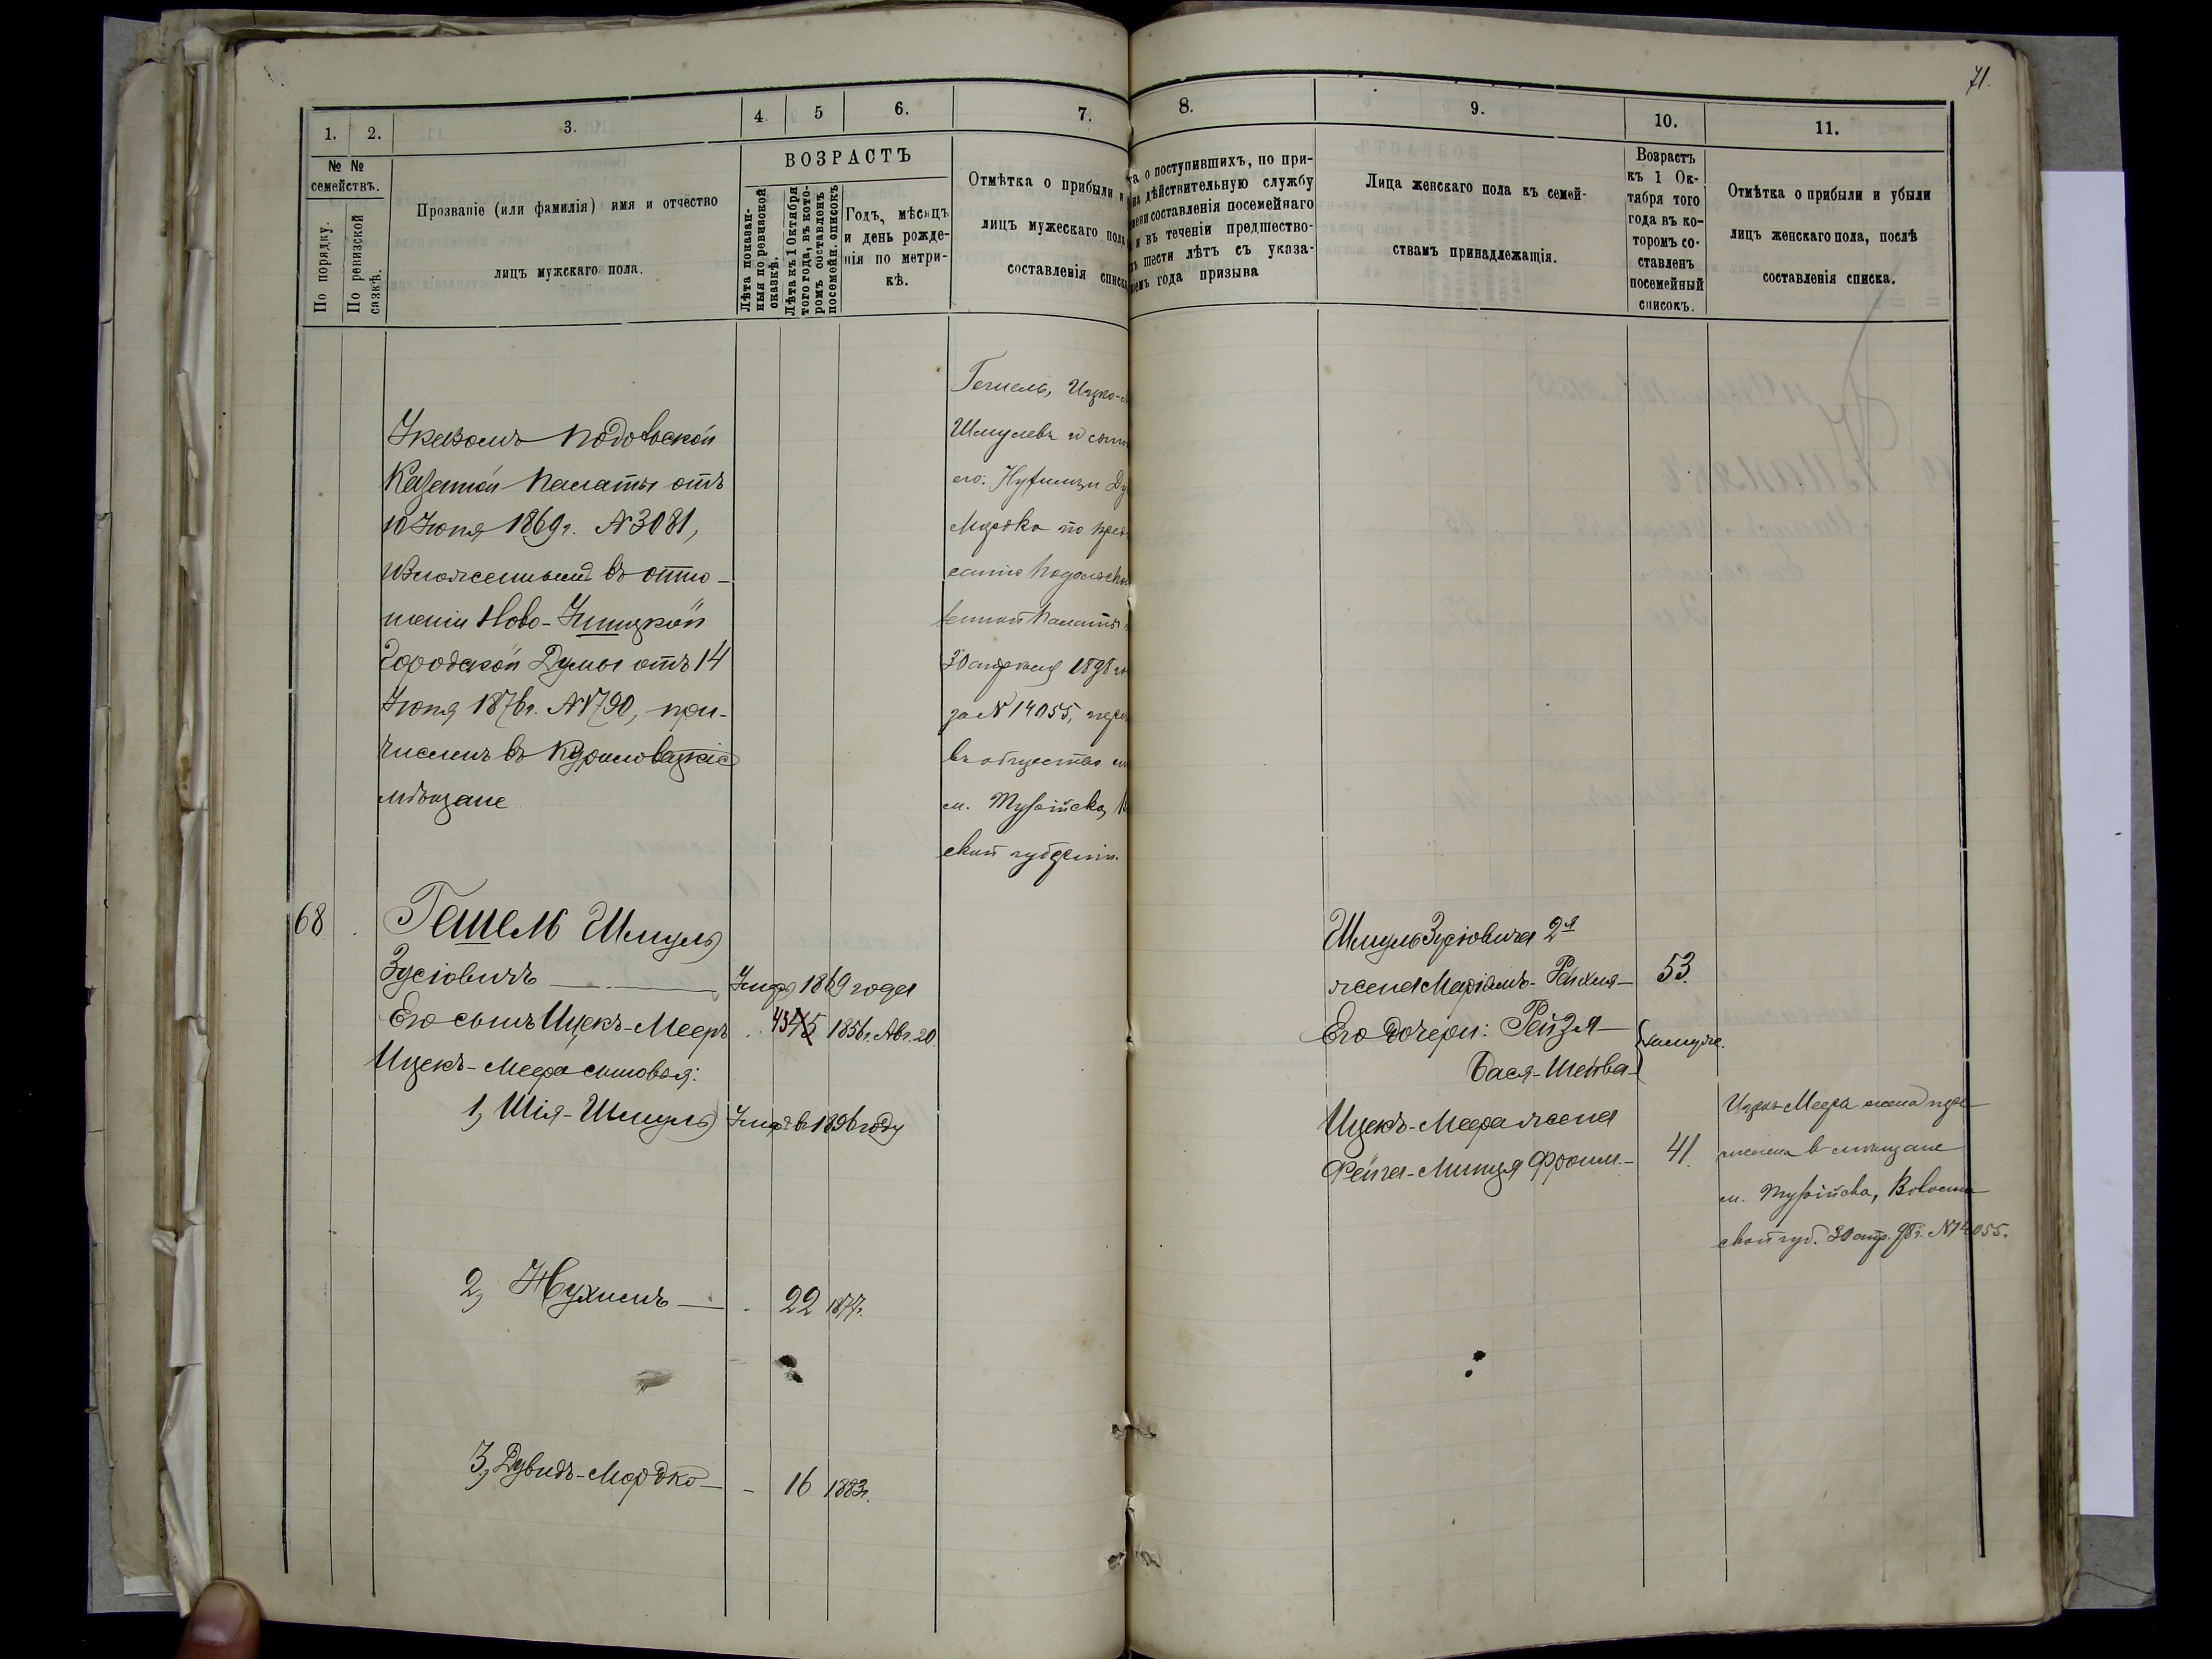 71.
1. 2. 3. 4. 5 6. 7. 8. 9. 10. 11.
№ № семействъ.
По порядку.
По ревизской сказкѣ.
Прозваніе (или фамилія) имя и отчество
лицъ мужскаго пола.
ВОЗРАСТЪ
Лѣта показан-
ныя по ревизской
сказкѣ.
Лѣта къ 1 Октября
того года, въ кото-
ромъ составленъ
посемейн. списокъ
Годъ, мѣсяцъ
и день рожде-
нія по метри-
кѣ.
Отмѣтка о прибыли и
лицъ мужескаго пола
составленія списка
та о поступившихъ, по при-
на дѣйствительную службу
мени составленія посемейнаго
и въ теченіи предшество-
хъ шести лѣтъ съ указа-
ніемъ года призыва
Лица женскаго пола къ семей-
ствамъ принадлежащія.
Возрастъ
къ 1 Ок-
тября того
года въ ко-
торомъ со-
ставленъ
посемейный
списокъ.
Отмѣтка о прибыли и убыли
лицъ женскаго пола, послѣ
составленія списка.
Указомъ Подольской
Казенной Палаты отъ
10 Іюня 1869 г. № 3081,
изложеннымъ въ отно-
шеніи Ново-Ушицкой
Городской Думы отъ 14
Іюня 1876 г. № 1790, при-
численъ въ Куриловецкіе
мѣщане
Гешель, Ицко-
Шмулевъ и сыно
его: Нухимъ и Ду
Мордко по пред
санію Подольско
зенной Палаты
30 апрѣля 1898 го
за № 14055, пере
въ общество
м. Турійска,
ской губерніи.
68 Гешель Шмуль
Зусіовичъ — Умеръ 1869 года
Его сынъ Ицекъ-Мееръ 43 45 1856 г. Авг. 20.
Ицекъ-Меера сыновья:
1, Шія-Шмуль Умеръ въ 1896 году
2, Нухимъ — 22 1877 г.
3, Дувидъ-Мордко — 16 1883 г.
Шмуля Зусіовича 2я
жена Маріамъ-Рахля — 53.
Его дочери: Рейзя —
Бася-Шейва — замужс.
Ицекъ-Меера жена
Фейга-Минця Фроим. — 41.
Ицекъ-Меера жена пере
числена въ мѣщане
м. Турійска, Волын
ской губ. 30 апр. 98 г. № 14055.